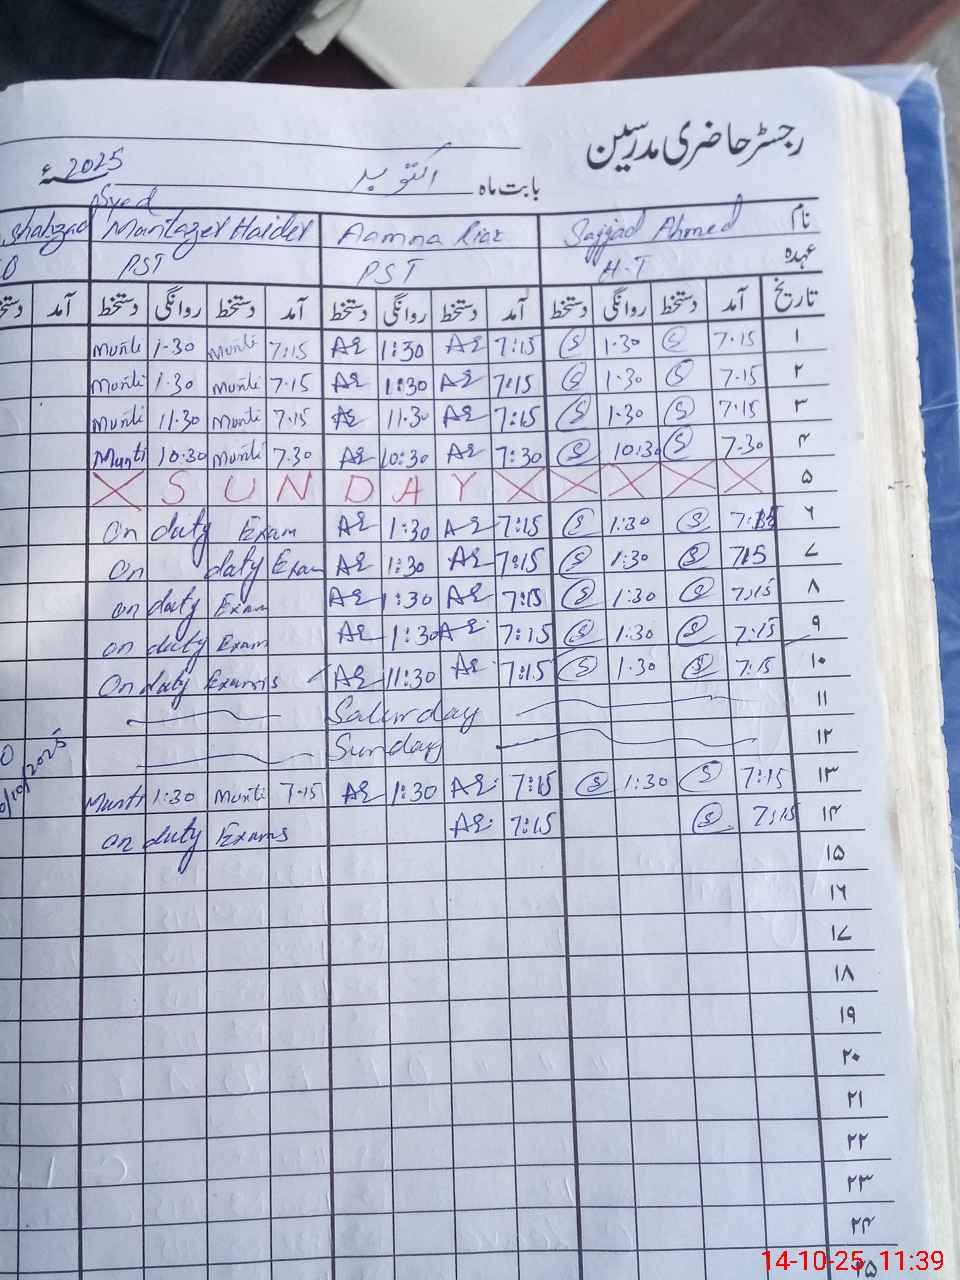 رجسٹر حاضری مدرسین
بابت ماہ اکتوبر 2025ء
نام Sajjad Ahmed Aamna Riaz Syed Muntazer Haider Shahzad
عہدہ H.T PST PST
تاریخ آمد دستخط روانگی دستخط آمد دستخط روانگی دستخط آمد دستخط روانگی دستخط آمد دستخط
۱ 7.15 S 1.30 S 7:15 AR 1:30 AR 7:15 Munti 1.30 Munti
۲ 7.15 S 1.30 S 7:15 AR 1:30 AR 7.15 Munti 1.30 Munti
۳ 7.15 S 1.30 S 7:15 AR 11.30 AR 7.15 Munti 11.30 Munti
۴ 7.30 S 10:30 S 7:30 AR 10:30 AR 7.30 Munti 10:30 Munti
۵ X S U N D A Y X X X X X
۶ 7:15 S 1:30 S 7:15 AR 1:30 AR On duty Exam
۷ 7:15 S 1:30 S 7:15 AR 1:30 AR On duty Exam
۸ 7:15 S 1:30 S 7:15 AR 1:30 AR on duty Exam
۹ 7:15 S 1:30 S 7:15 AR 1:30 AR on duty Exam
۱۰ 7:15 S 1:30 S 7:15 AR 11:30 AR On duty Exams
۱۱ Saturday
۱۲ Sunday
۱۳ 7:15 S 1:30 S 7:15 AR 1:30 AR 7.15 Munti 1:30 Munti
۱۴ 7:15 S 7:15 AR On duty Exams
۱۵
۱۶
۱۷
۱۸
۱۹
۲۰
۲۱
۲۲
۲۳
۲۴
۲۵
14-10-25 11:39